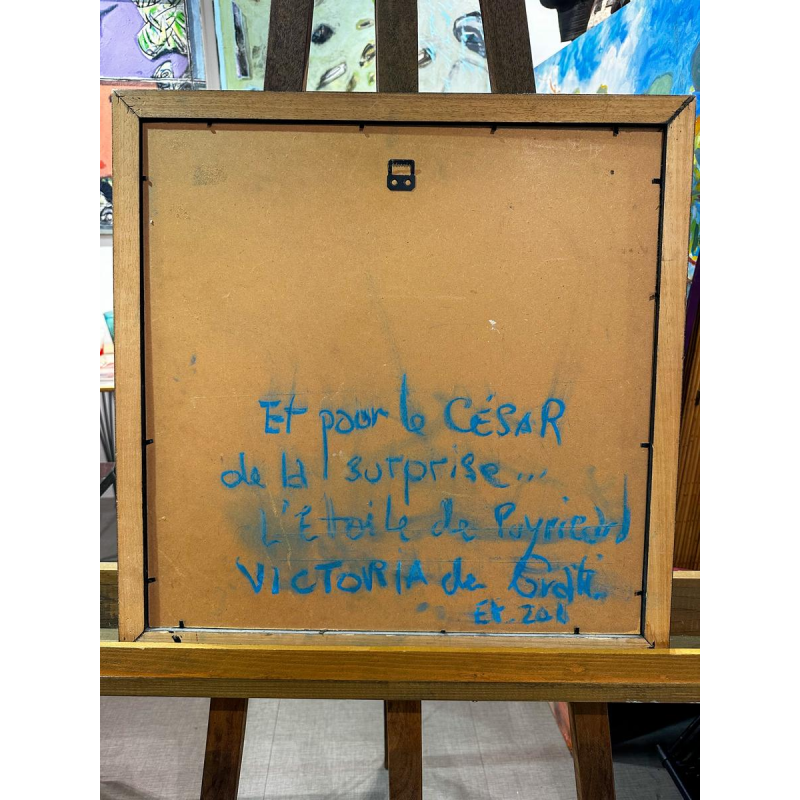 Et pour le CÉSAR
de la surprise...
L'Etoile de Puyricard
VICTORIA de